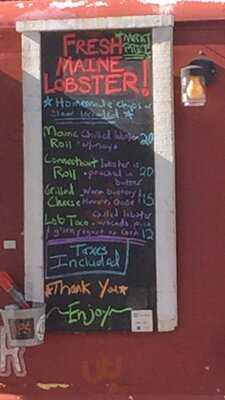 FRESH
MAINE
LOBSTER!
* Homemade chips or
slaw Included *
Maine Chilled lobster 20
Roll w/mayo
Connecticut lobster is
Roll poached in 20
butter
Grilled warm buttery
Cheese 15
Chilled lobster
Lob Taco avocado,
12
Taxes
Included
*Thank You*
Enjoy